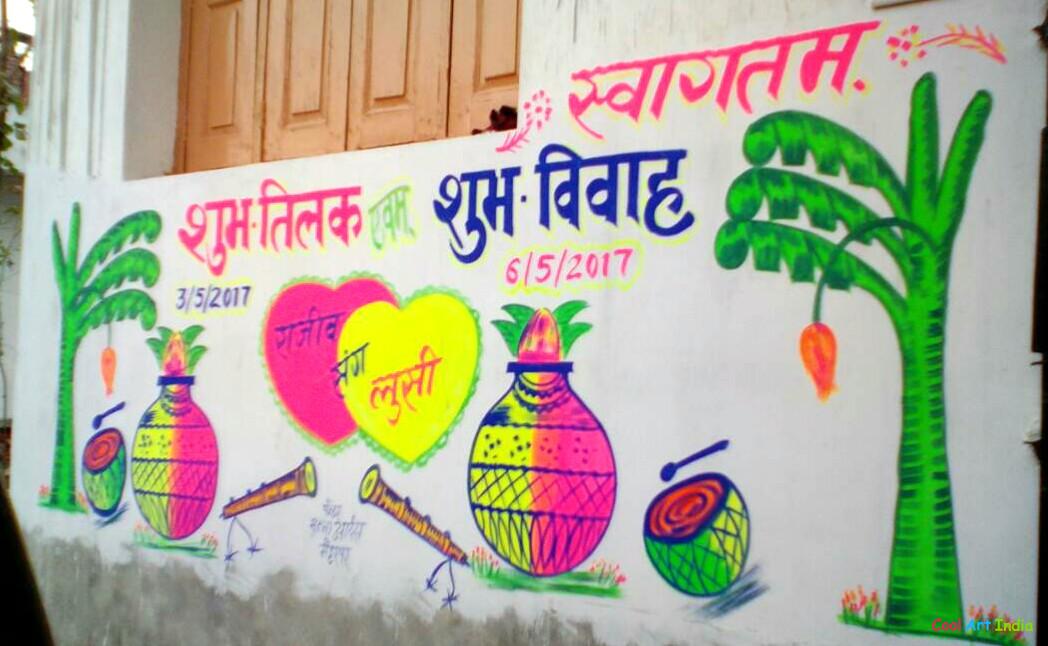 स्वागतम.
शुभ·तिलक एवम् शुभ·विवाह
3/5/2017
6/5/2017
राजीव
संग
लुसी
Cool Art India